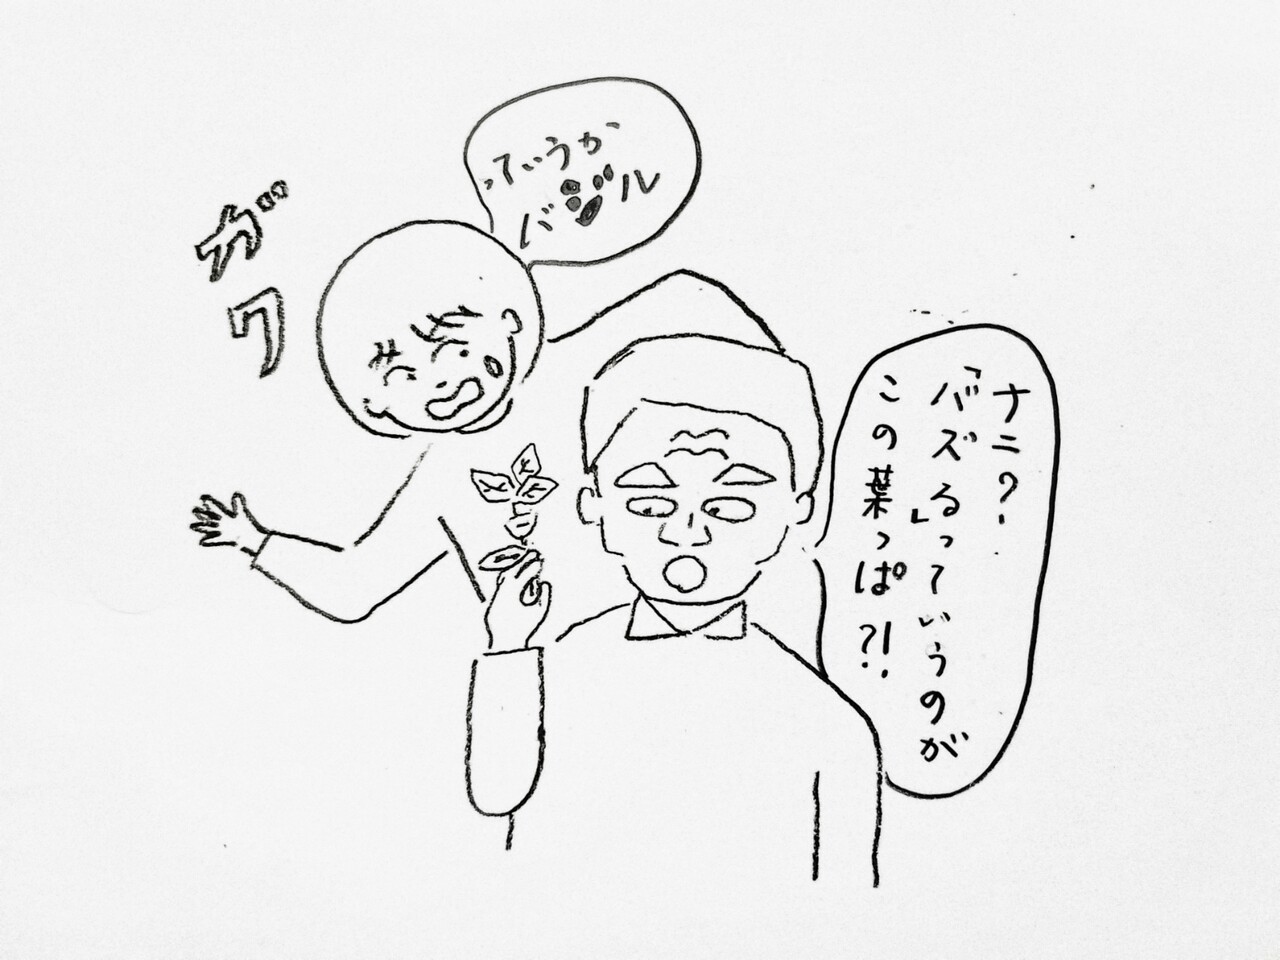 ナニ?
「バズる」っていうのが
この葉っぱ?!
っていうか
バジル
ガク